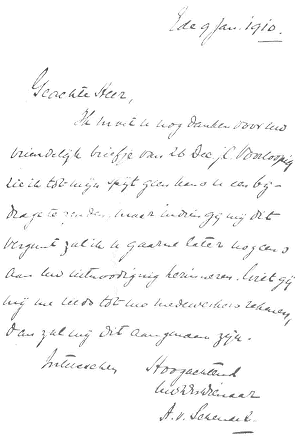 Ede 9 Jan. 1910.
Geachte Heer,
Ik moet u nog danken voor uw
vriendelijk briefje van 26 Dec. j.l. Voorloopig
zie ik tot mijn spijt geen kans u een bij-
drage te zenden. maar indien gij mij dit
vergunt zal ik u gaarne later nog eens
aan uw uitnoodiging herinneren. Wilt gij
mij reeds tot uw medewerkers rekenen,
dan zal mij dit aangenaam zijn.
Intusschen Hoogachtend
Uw Dw Dienaar
A. v.